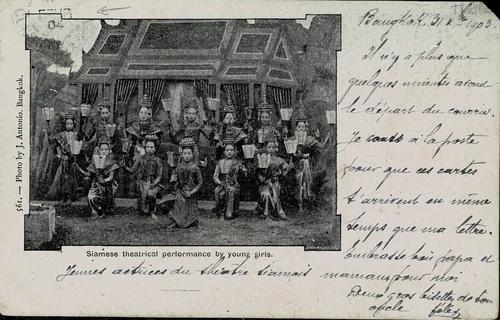 Bangkok, 31 Xbre 1903.
Il n'y a plus que
quelques minutes avant
le départ du courrier.
Je cours à la poste
pour que ces cartes
t'arrivent en même
temps que ma lettre.
Embrasse bien papa et
maman pour moi
Deux gros bisettes de ton
oncle
561. — Photo by J. Antonio, Bangkok.
Siamese theatrical performance by young girls.
Jeunes actrices du théâtre siamois